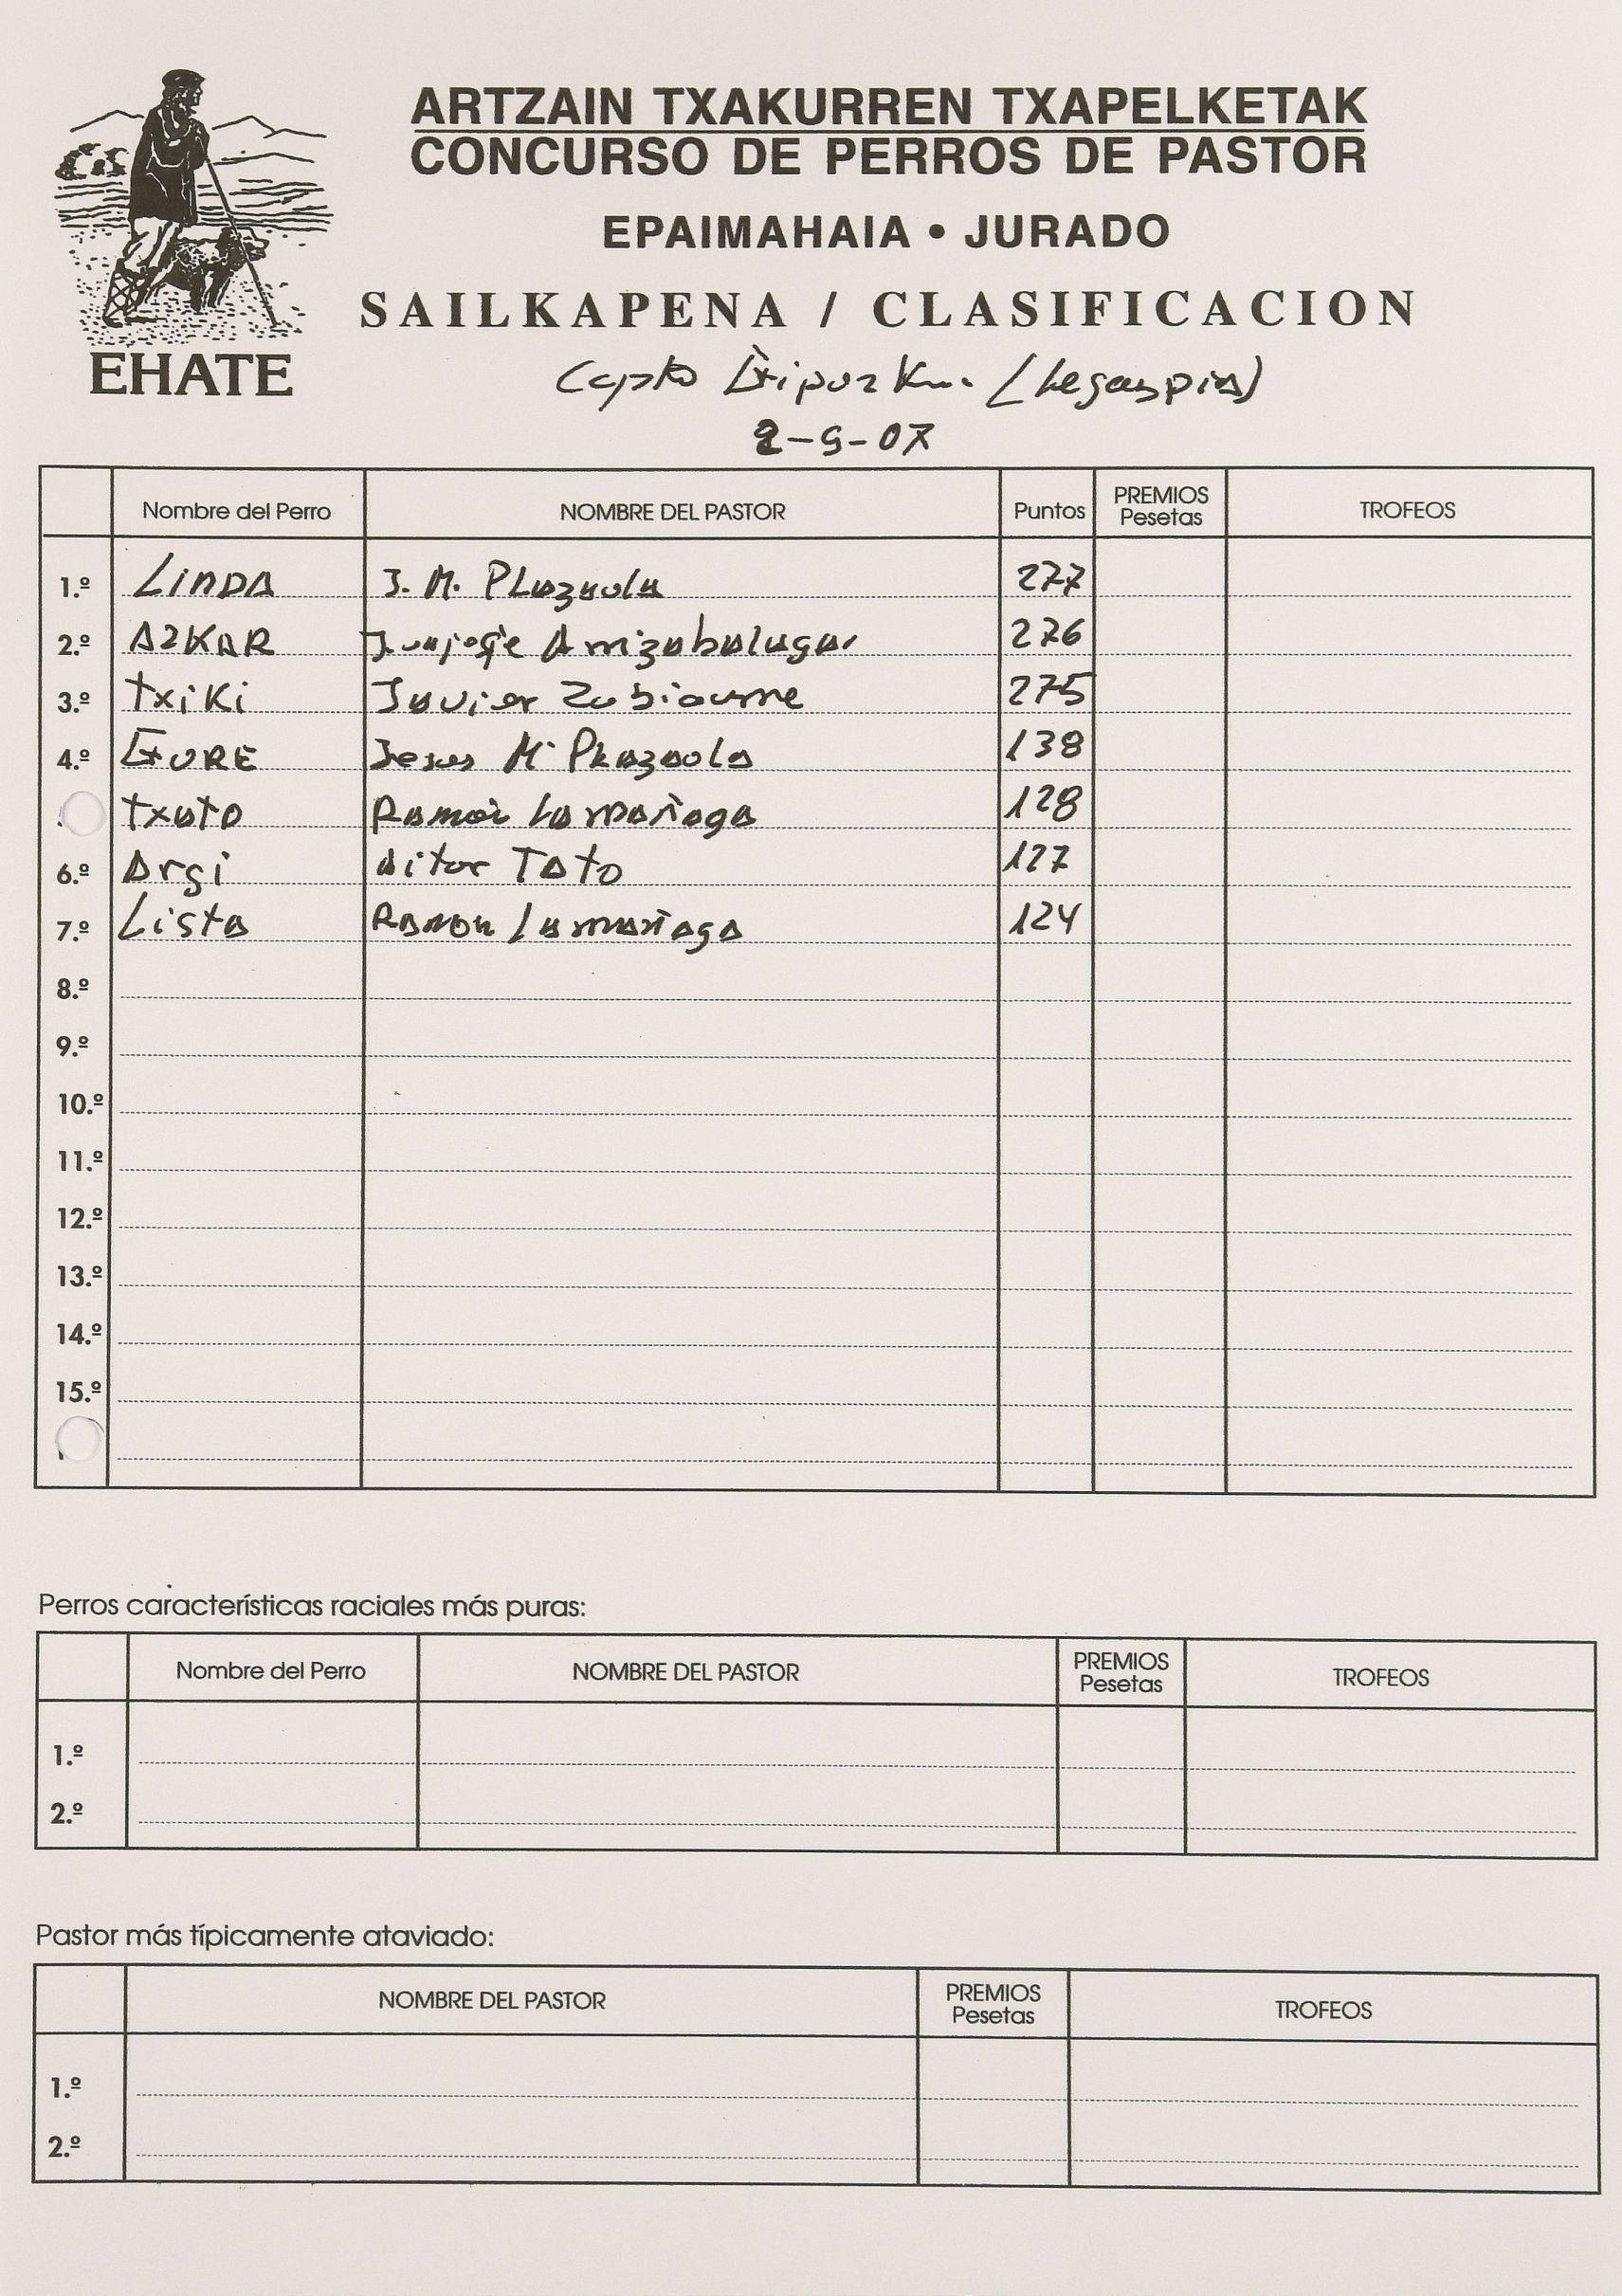 ARTZAIN TXAKURREN TXAPELKETAK
CONCURSO DE PERROS DE PASTOR
EPAIMAHAIA • JURADO
SAILKAPENA / CLASIFICACION
EHATE
Cpto Gipuzkoa (Legazpia)
2-9-07
Nombre del Perro NOMBRE DEL PASTOR Puntos PREMIOS Pesetas TROFEOS
1.º LINDA J. M. Plazaola 277
2.º AZKAR Juanjose Arrizabalaga 276
3.º Txiki Javier Zubiaurre 275
4.º GURE Jesus Mª Plazaola 138
Txato Ramón Larrañaga 128
6.º Argi Aitor Tato 127
7.º Lista Ramon Larrañaga 124
8.º
9.º
10.º
11.º
12.º
13.º
14.º
15.º
Perros características raciales más puras:
Nombre del Perro NOMBRE DEL PASTOR PREMIOS Pesetas TROFEOS
1.º
2.º
Pastor más típicamente ataviado:
NOMBRE DEL PASTOR PREMIOS Pesetas TROFEOS
1.º
2.º